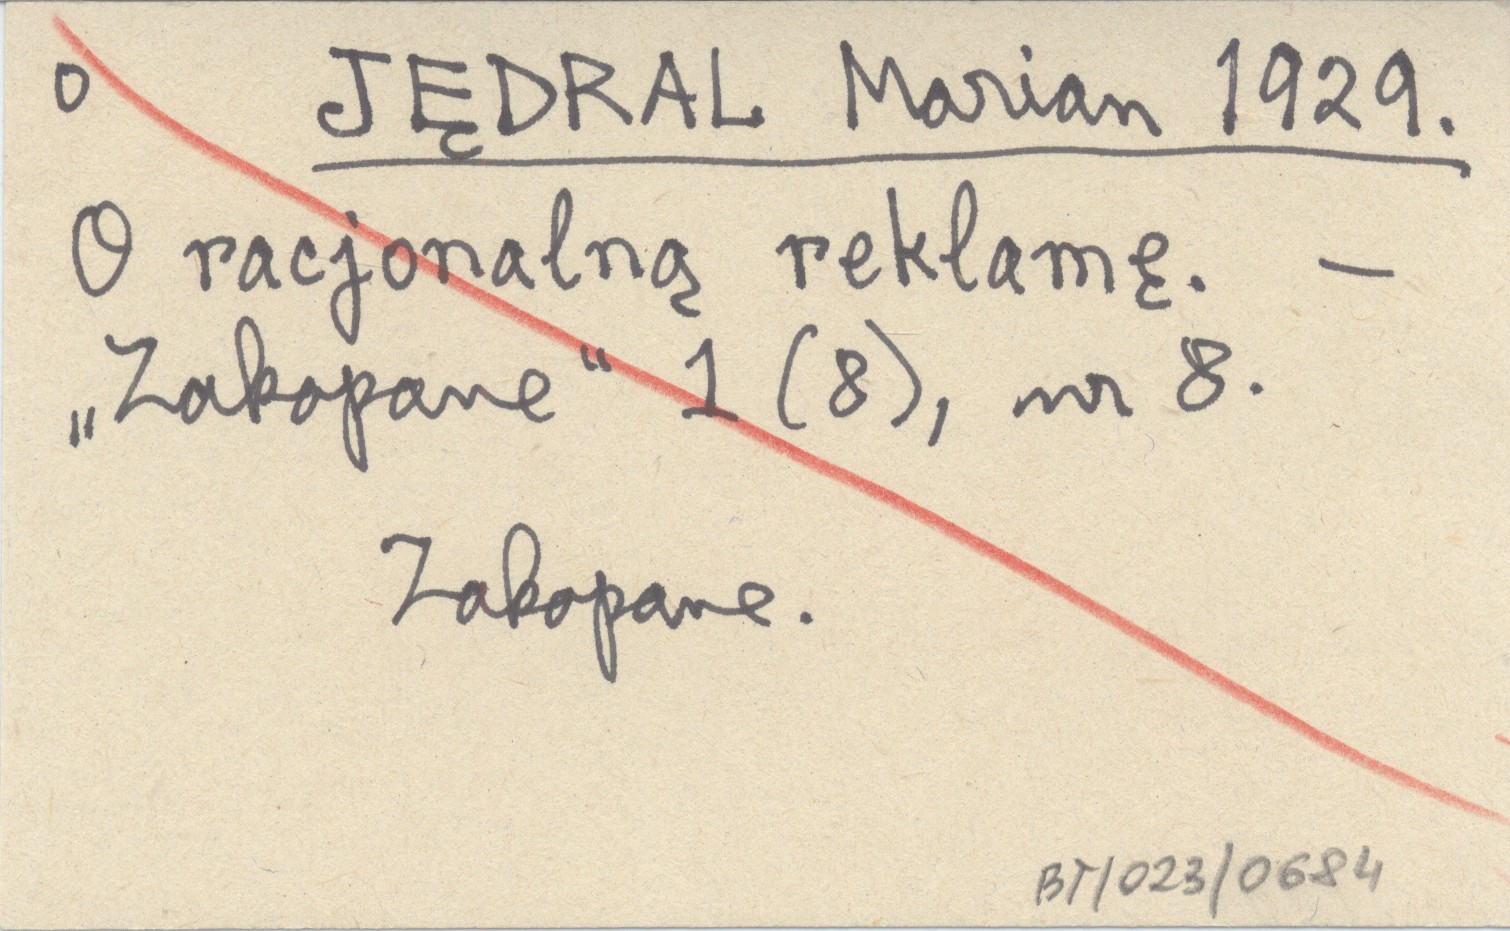 o JĘDRAL Marian 1929.
O racjonalną reklamę. —
„Zakopane“ 1 (8), nr 8.
Zakopane.
BT/023/0684